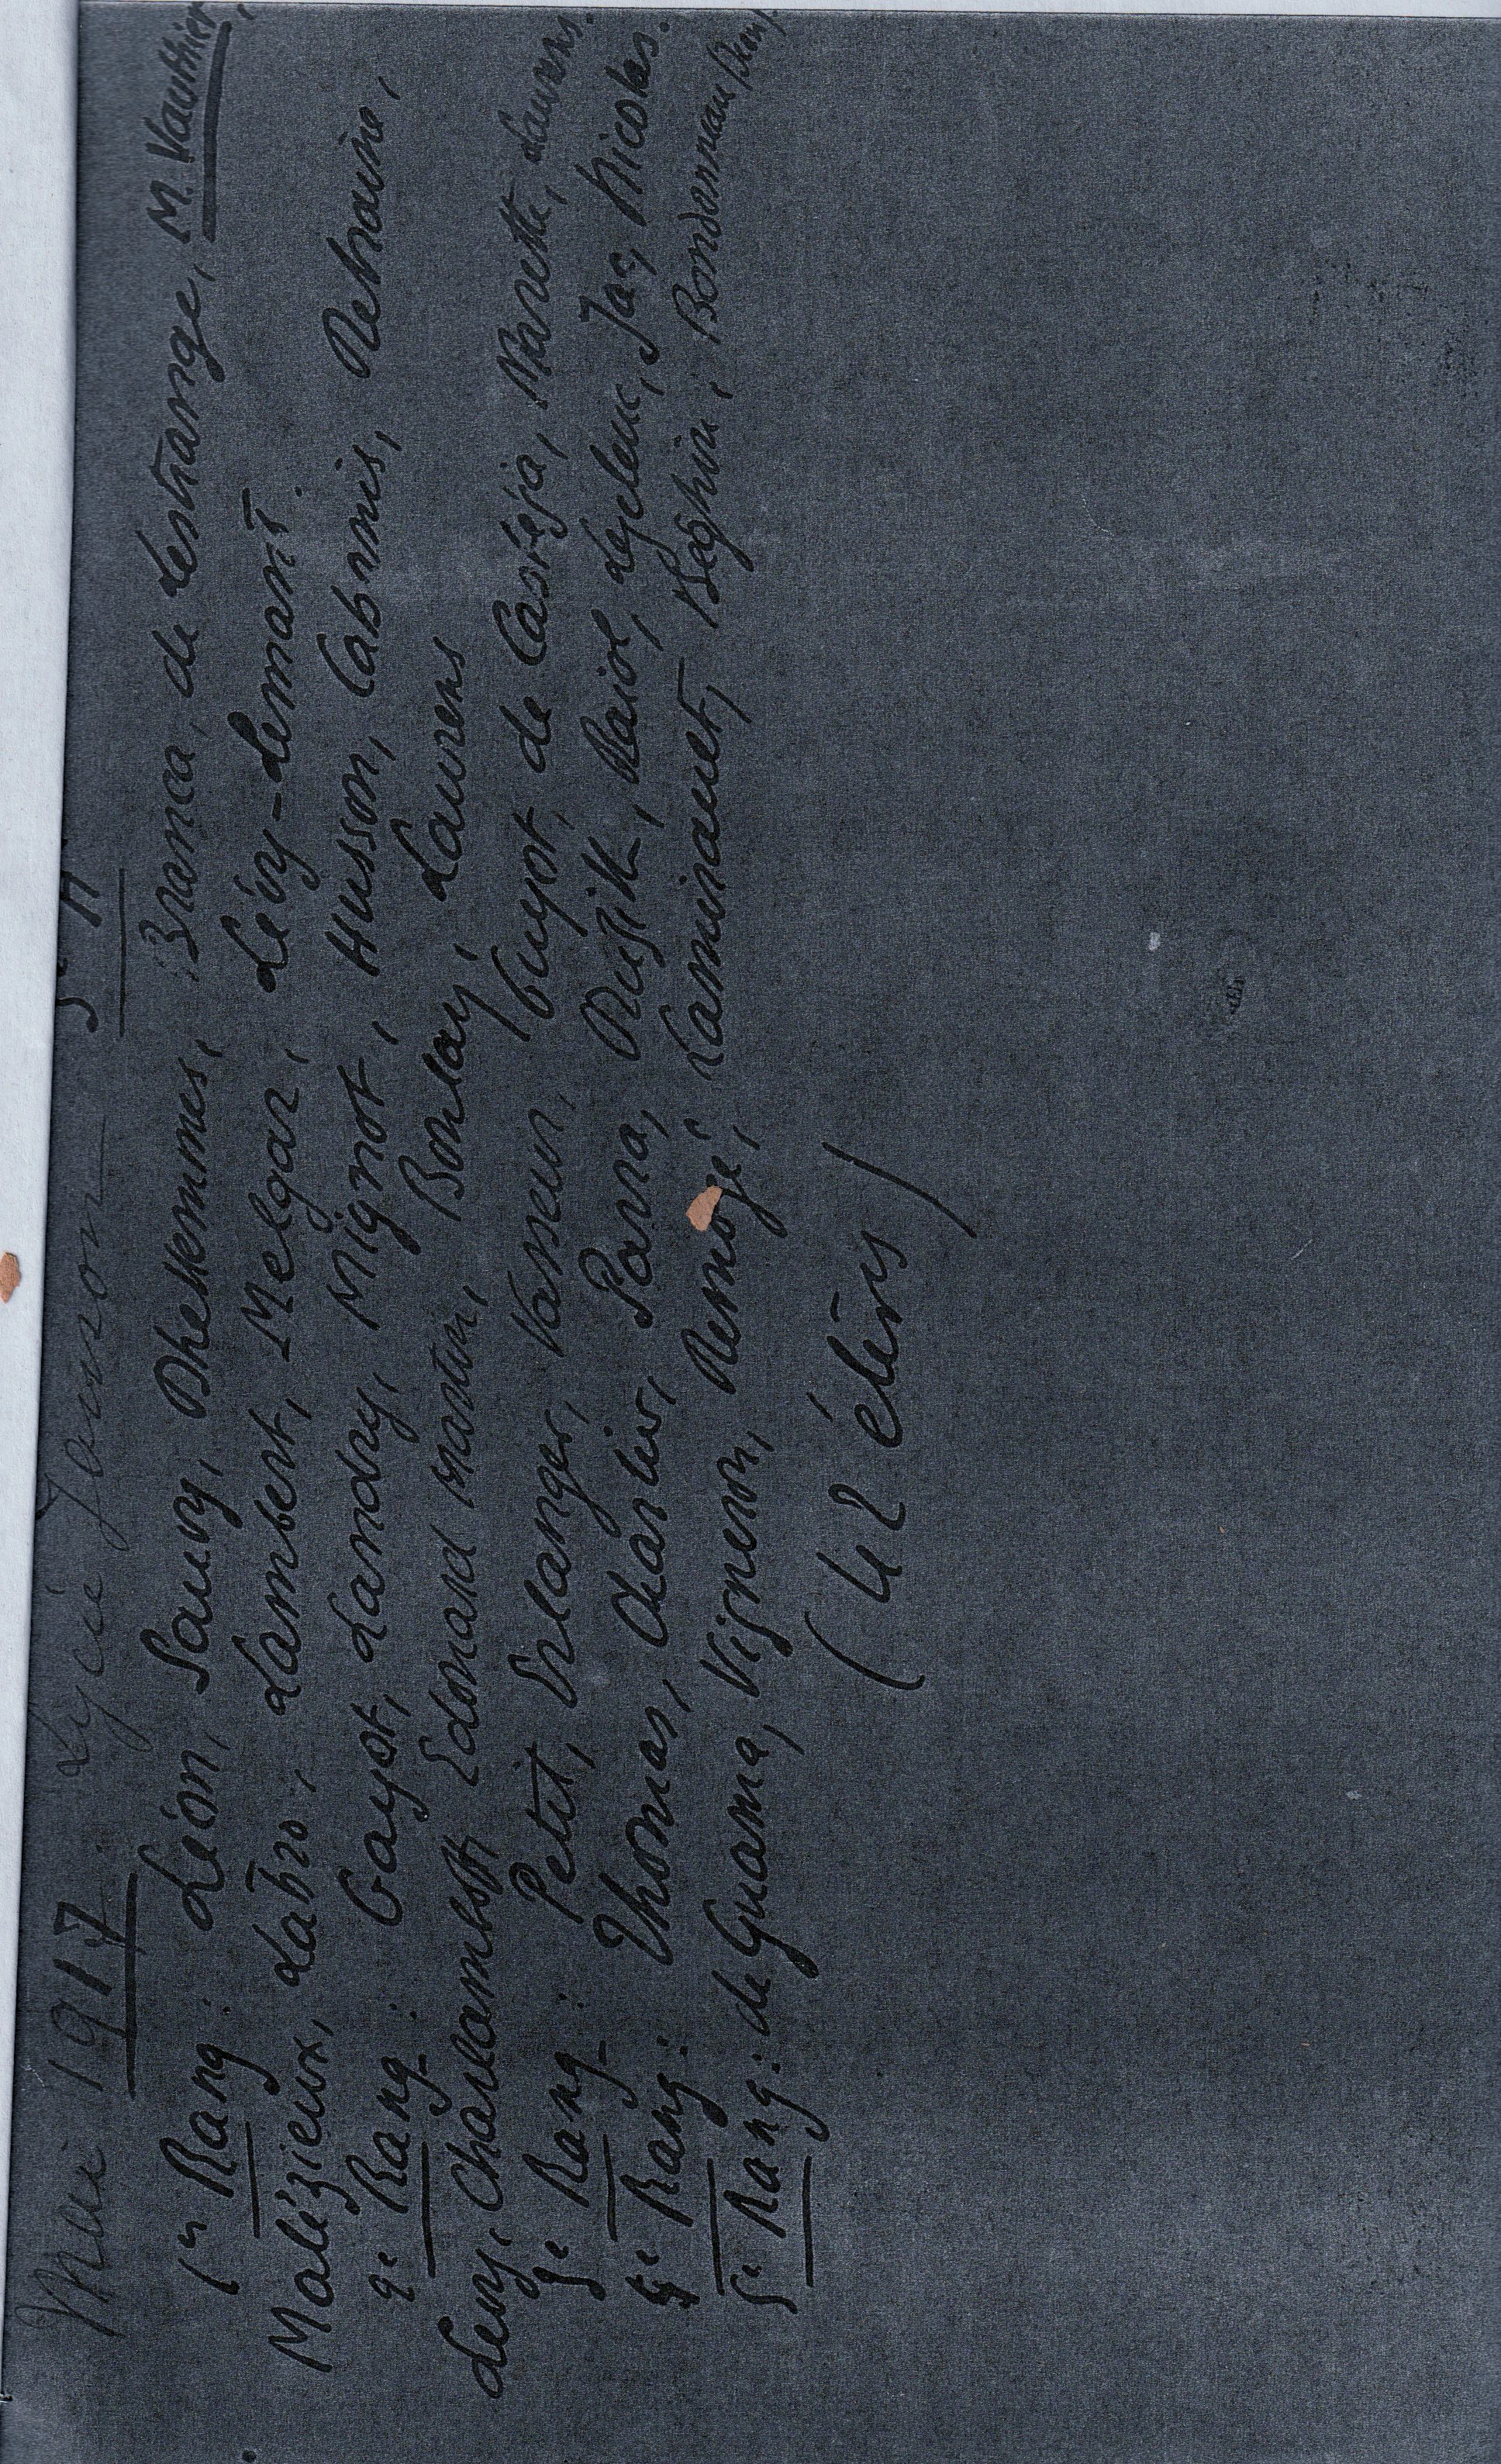 Mai 1917. Lycée Janson 5e A
1er Rang: Léon, Sauvy, Dhellemmes, Branca, de Lestrange, M. Vauthier,
Malézieux, Labro, Lambert, Melgar, Lévy-Lemant.
2e Rang: Gayot, Landry, Mignot, Husson, Cabanis, Retraine,
Levy, Charlambert, Edouard Martin, Boulay, Laurens
3e Rang: Petit, Erlanger, Vasseur, Guyot, de Caséja, Navette, Laurens.
4e Rang: Thomas, Charlier, Parra, Lejeune, Jac, Nicolas.
5e Rang: de Guana, Vigneron, Laminauet, Beghin, Bondenneau
(42 élèves)